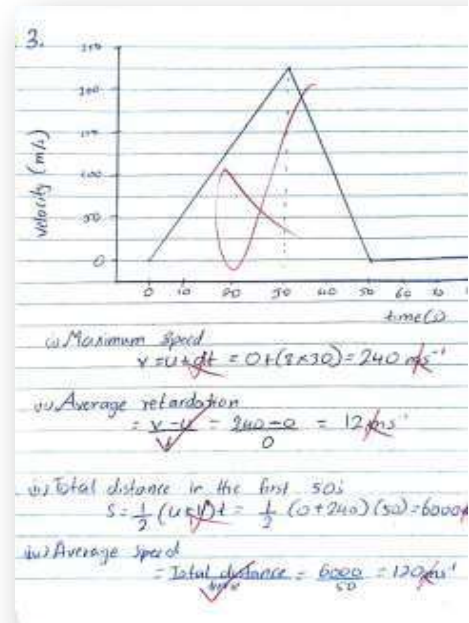 3.
250
200
150
100
50
0
velocity (m/s)
0 10 20 30 40 50 60 70
time(s)
(i) Maximum Speed
v = u + at = 0 + (8×30) = 240 ms⁻¹
(ii) Average retardation
= v-u/t = 240-0/0 = 12 ms⁻¹
(iii) Total distance in the first 50s
S = 1/2 (u+v) t = 1/2 (0+240) (50) = 6000
(iv) Average Speed
= Total distance/time = 6000/50 = 120 ms⁻¹